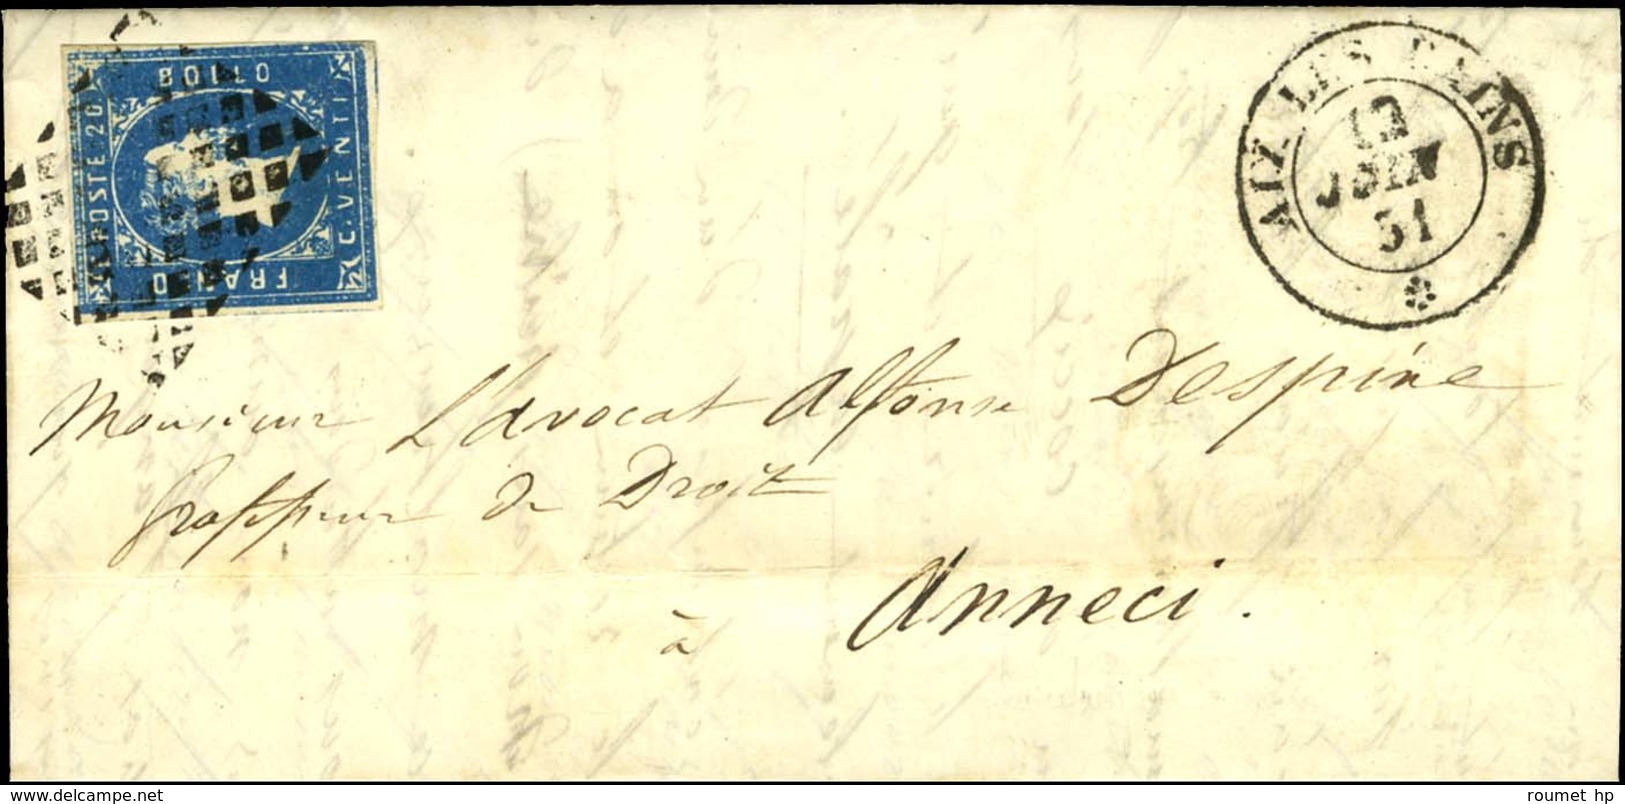 POSTE 20
C. VENTI
FRANCO BOLLO
AIX LES BAINS
JUIN
51
Monsieur L'avocat Alfonse Despine
Professeur de Droit
à Anneci.
delcampe.net
roumet hp